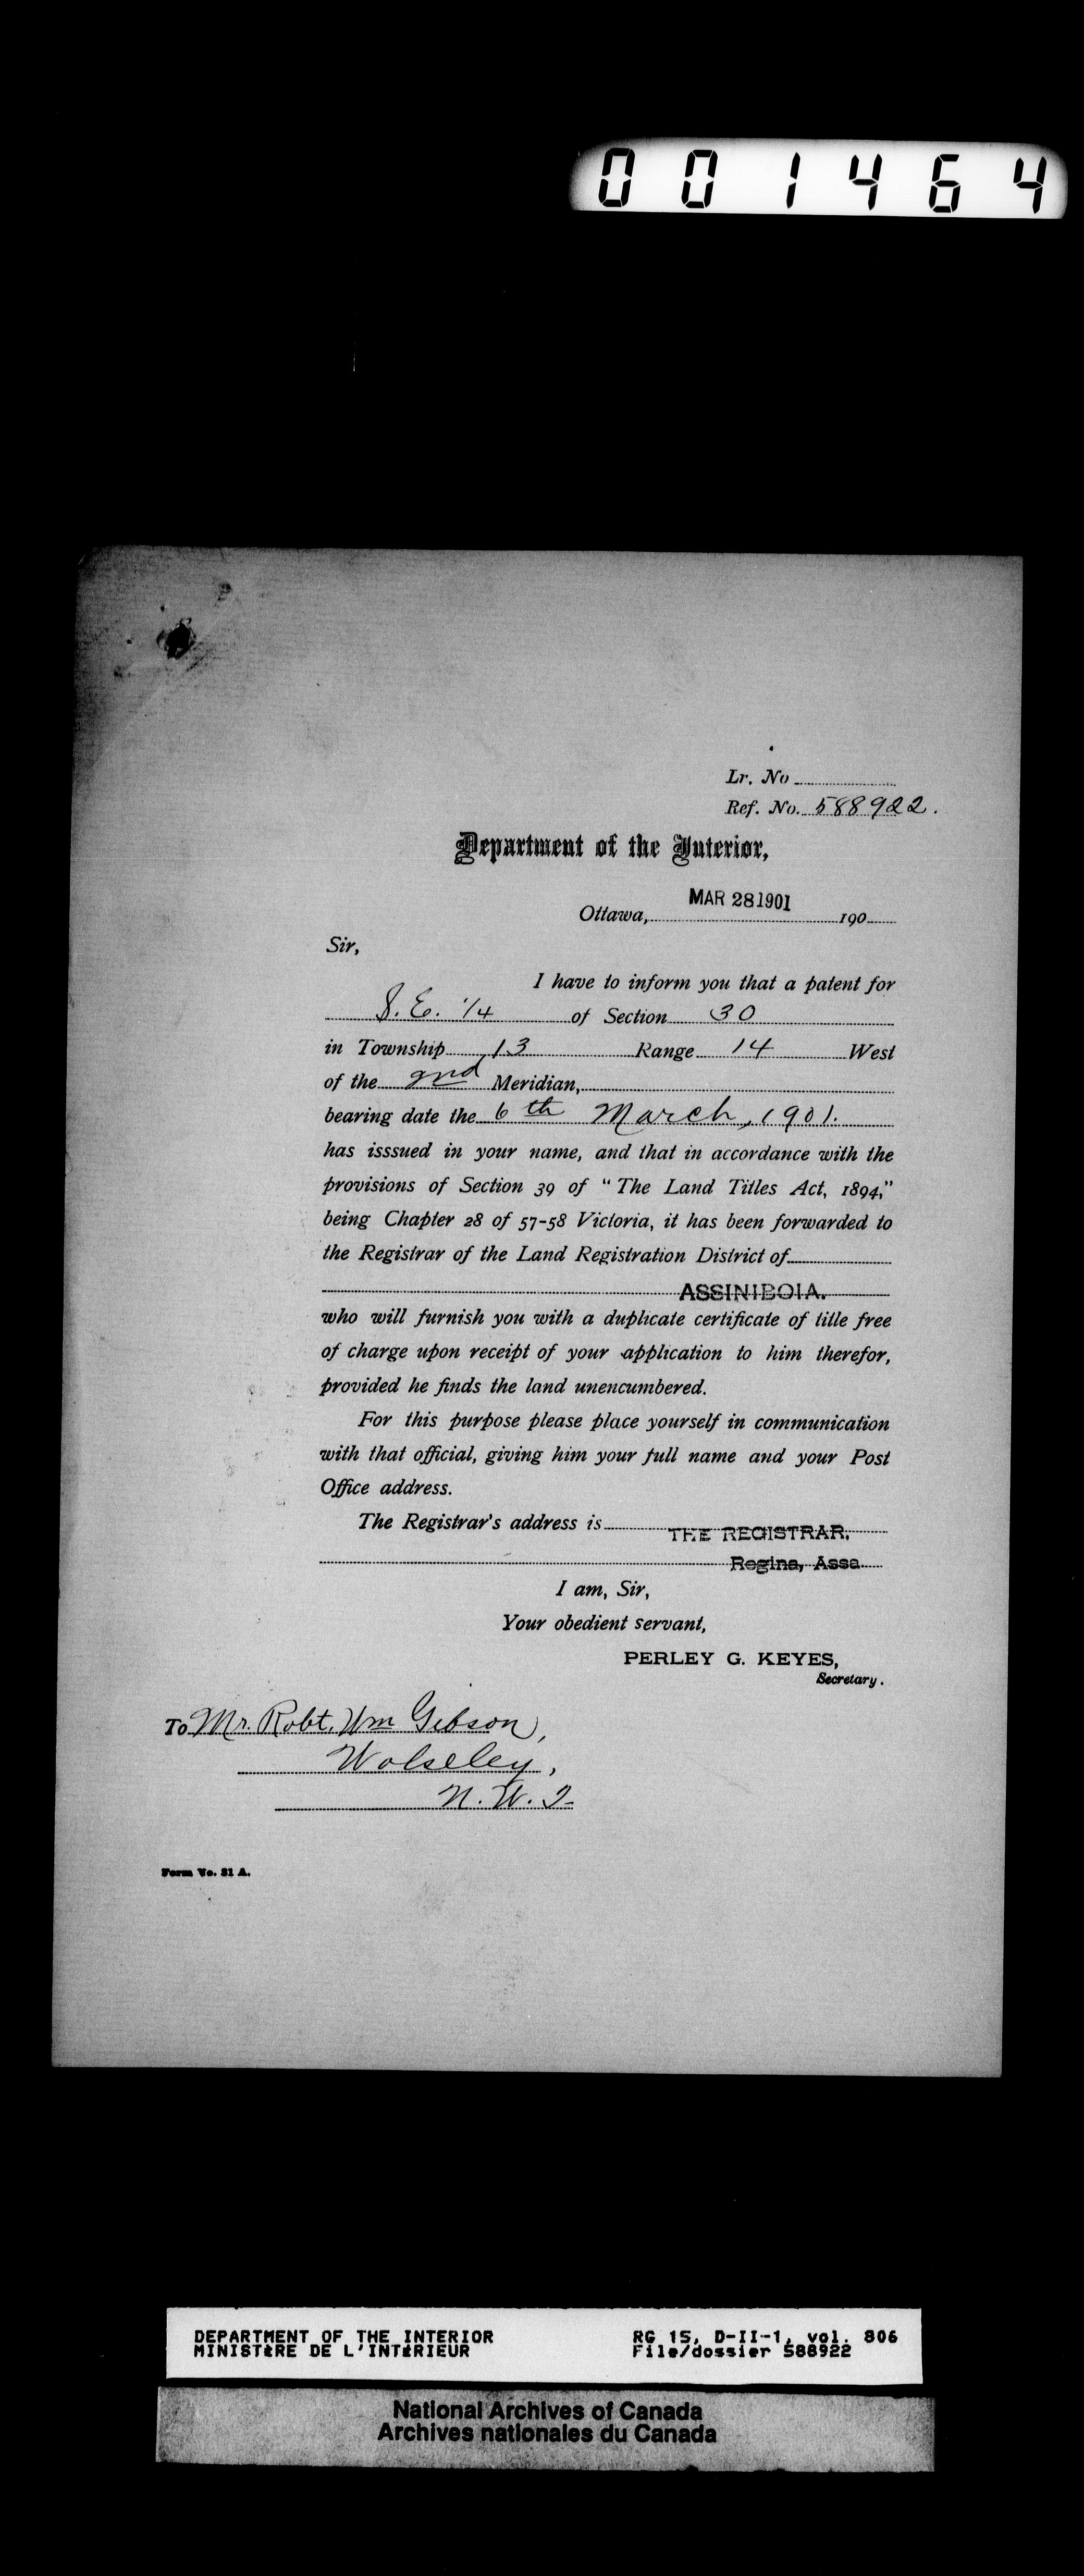 001464
Lr. No
Ref. No. 588922.
Department of the Interior,
Ottawa, MAR 28 1901 190
Sir,
I have to inform you that a patent for
S. E. 1/4 of Section 30
in Township 13 Range 14 West
of the 2nd Meridian,
bearing date the 6th March, 1901.
has isssued in your name, and that in accordance with the
provisions of Section 39 of "The Land Titles Act, 1894,"
being Chapter 28 of 57-58 Victoria, it has been forwarded to
the Registrar of the Land Registration District of
ASSINIBOIA.
who will furnish you with a duplicate certificate of title free
of charge upon receipt of your application to him therefor,
provided he finds the land unencumbered.
For this purpose please place yourself in communication
with that official, giving him your full name and your Post
Office address.
The Registrar's address is THE REGISTRAR,
Regina, Assa
I am, Sir,
Your obedient servant,
PERLEY G. KEYES,
Secretary.
To Mr. Robt. Wm Gibson,
Wolseley,
N. W. T.
Form No. 31 A.
DEPARTMENT OF THE INTERIOR RG 15, D-II-1, vol. 806
MINISTÈRE DE L'INTÉRIEUR File/dossier 588922
National Archives of Canada
Archives nationales du Canada